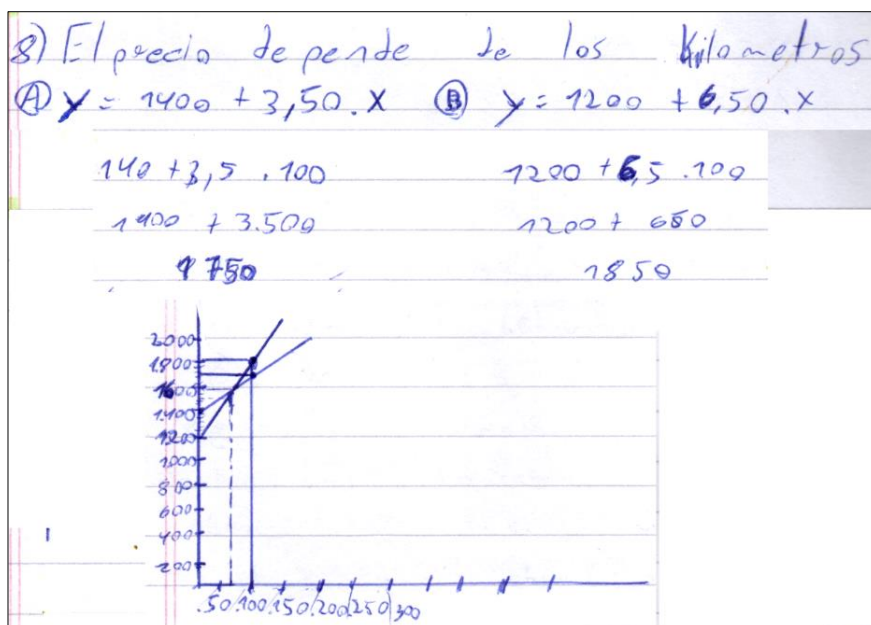 8) El precio depende de los Kilometros
Ⓐ y = 1400 + 3,50 . x Ⓑ y = 1200 + 6,50 . x
140 + 3,5 . 100 1200 + 6,5 . 100
1400 + 3.500 1200 + 650
1750 1850
2000
1.800
1600
1.400
1200
1000
800
600
400
200
50 100 150 200 250 300